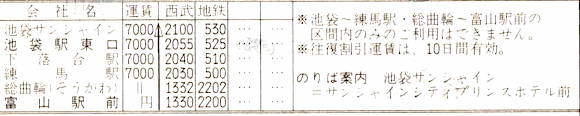 会社名 運賃 西武 地鉄
池袋サンシャイン 7000 2100 530 … …
池袋駅東口 7000 2055 525 … …
下落合駅 7000 2040 510 … …
練馬駅 7000 2030 500 … …
総曲輪(そうがわ) ‖ 1332 2202 … …
富山駅前 円 1330 2200 … …
※池袋~練馬駅・総曲輪~富山駅前の
区間内のみのご利用はできません。
※往復割引運賃は、10日間有効。
のりば案内 池袋サンシャイン
=サンシャインシティプリンスホテル前